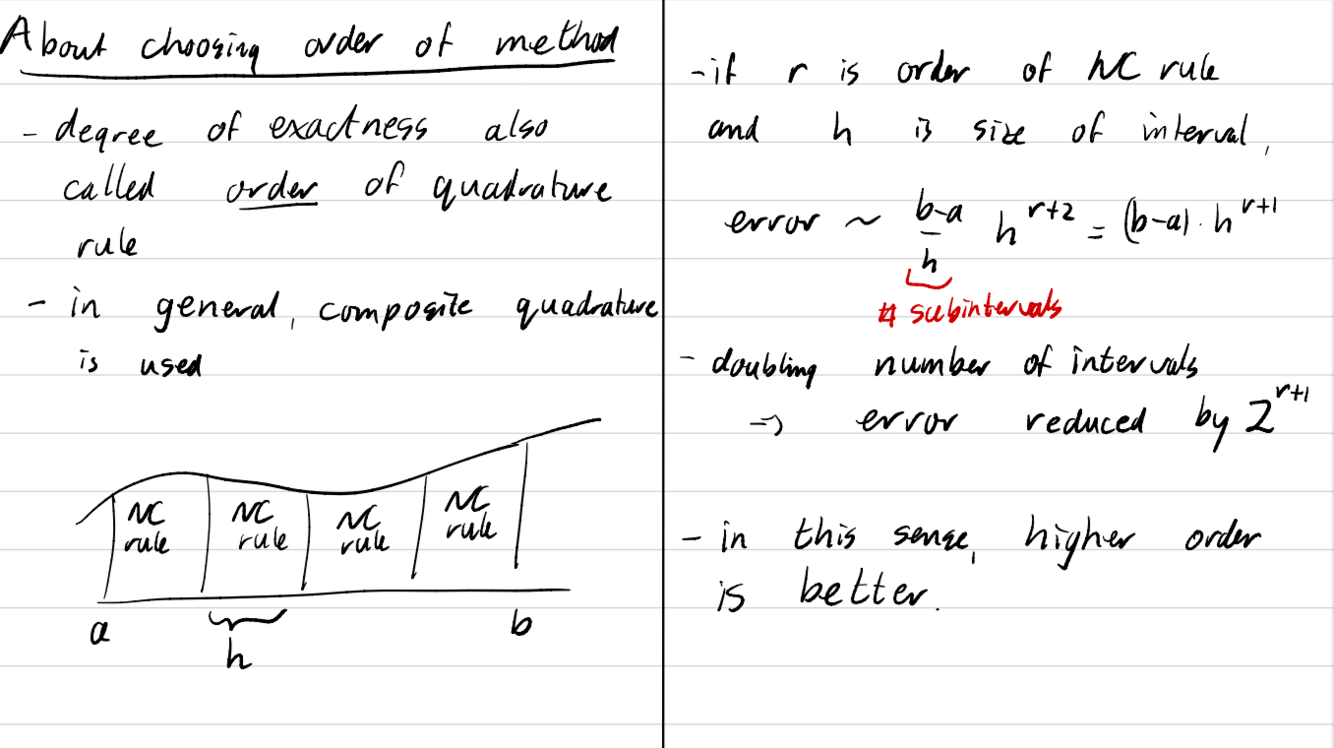 About choosing order of method
- degree of exactness also
called order of quadrature
rule
- in general, composite quadrature
is used
NC rule NC rule NC rule NC rule
a h b
- if r is order of NC rule
and h is size of interval,
error ~ b-a/h h^r+2 = (b-a) · h^r+1
# subintervals
- doubling number of intervals
=> error reduced by 2^r+1
- in this sense, higher order
is better.